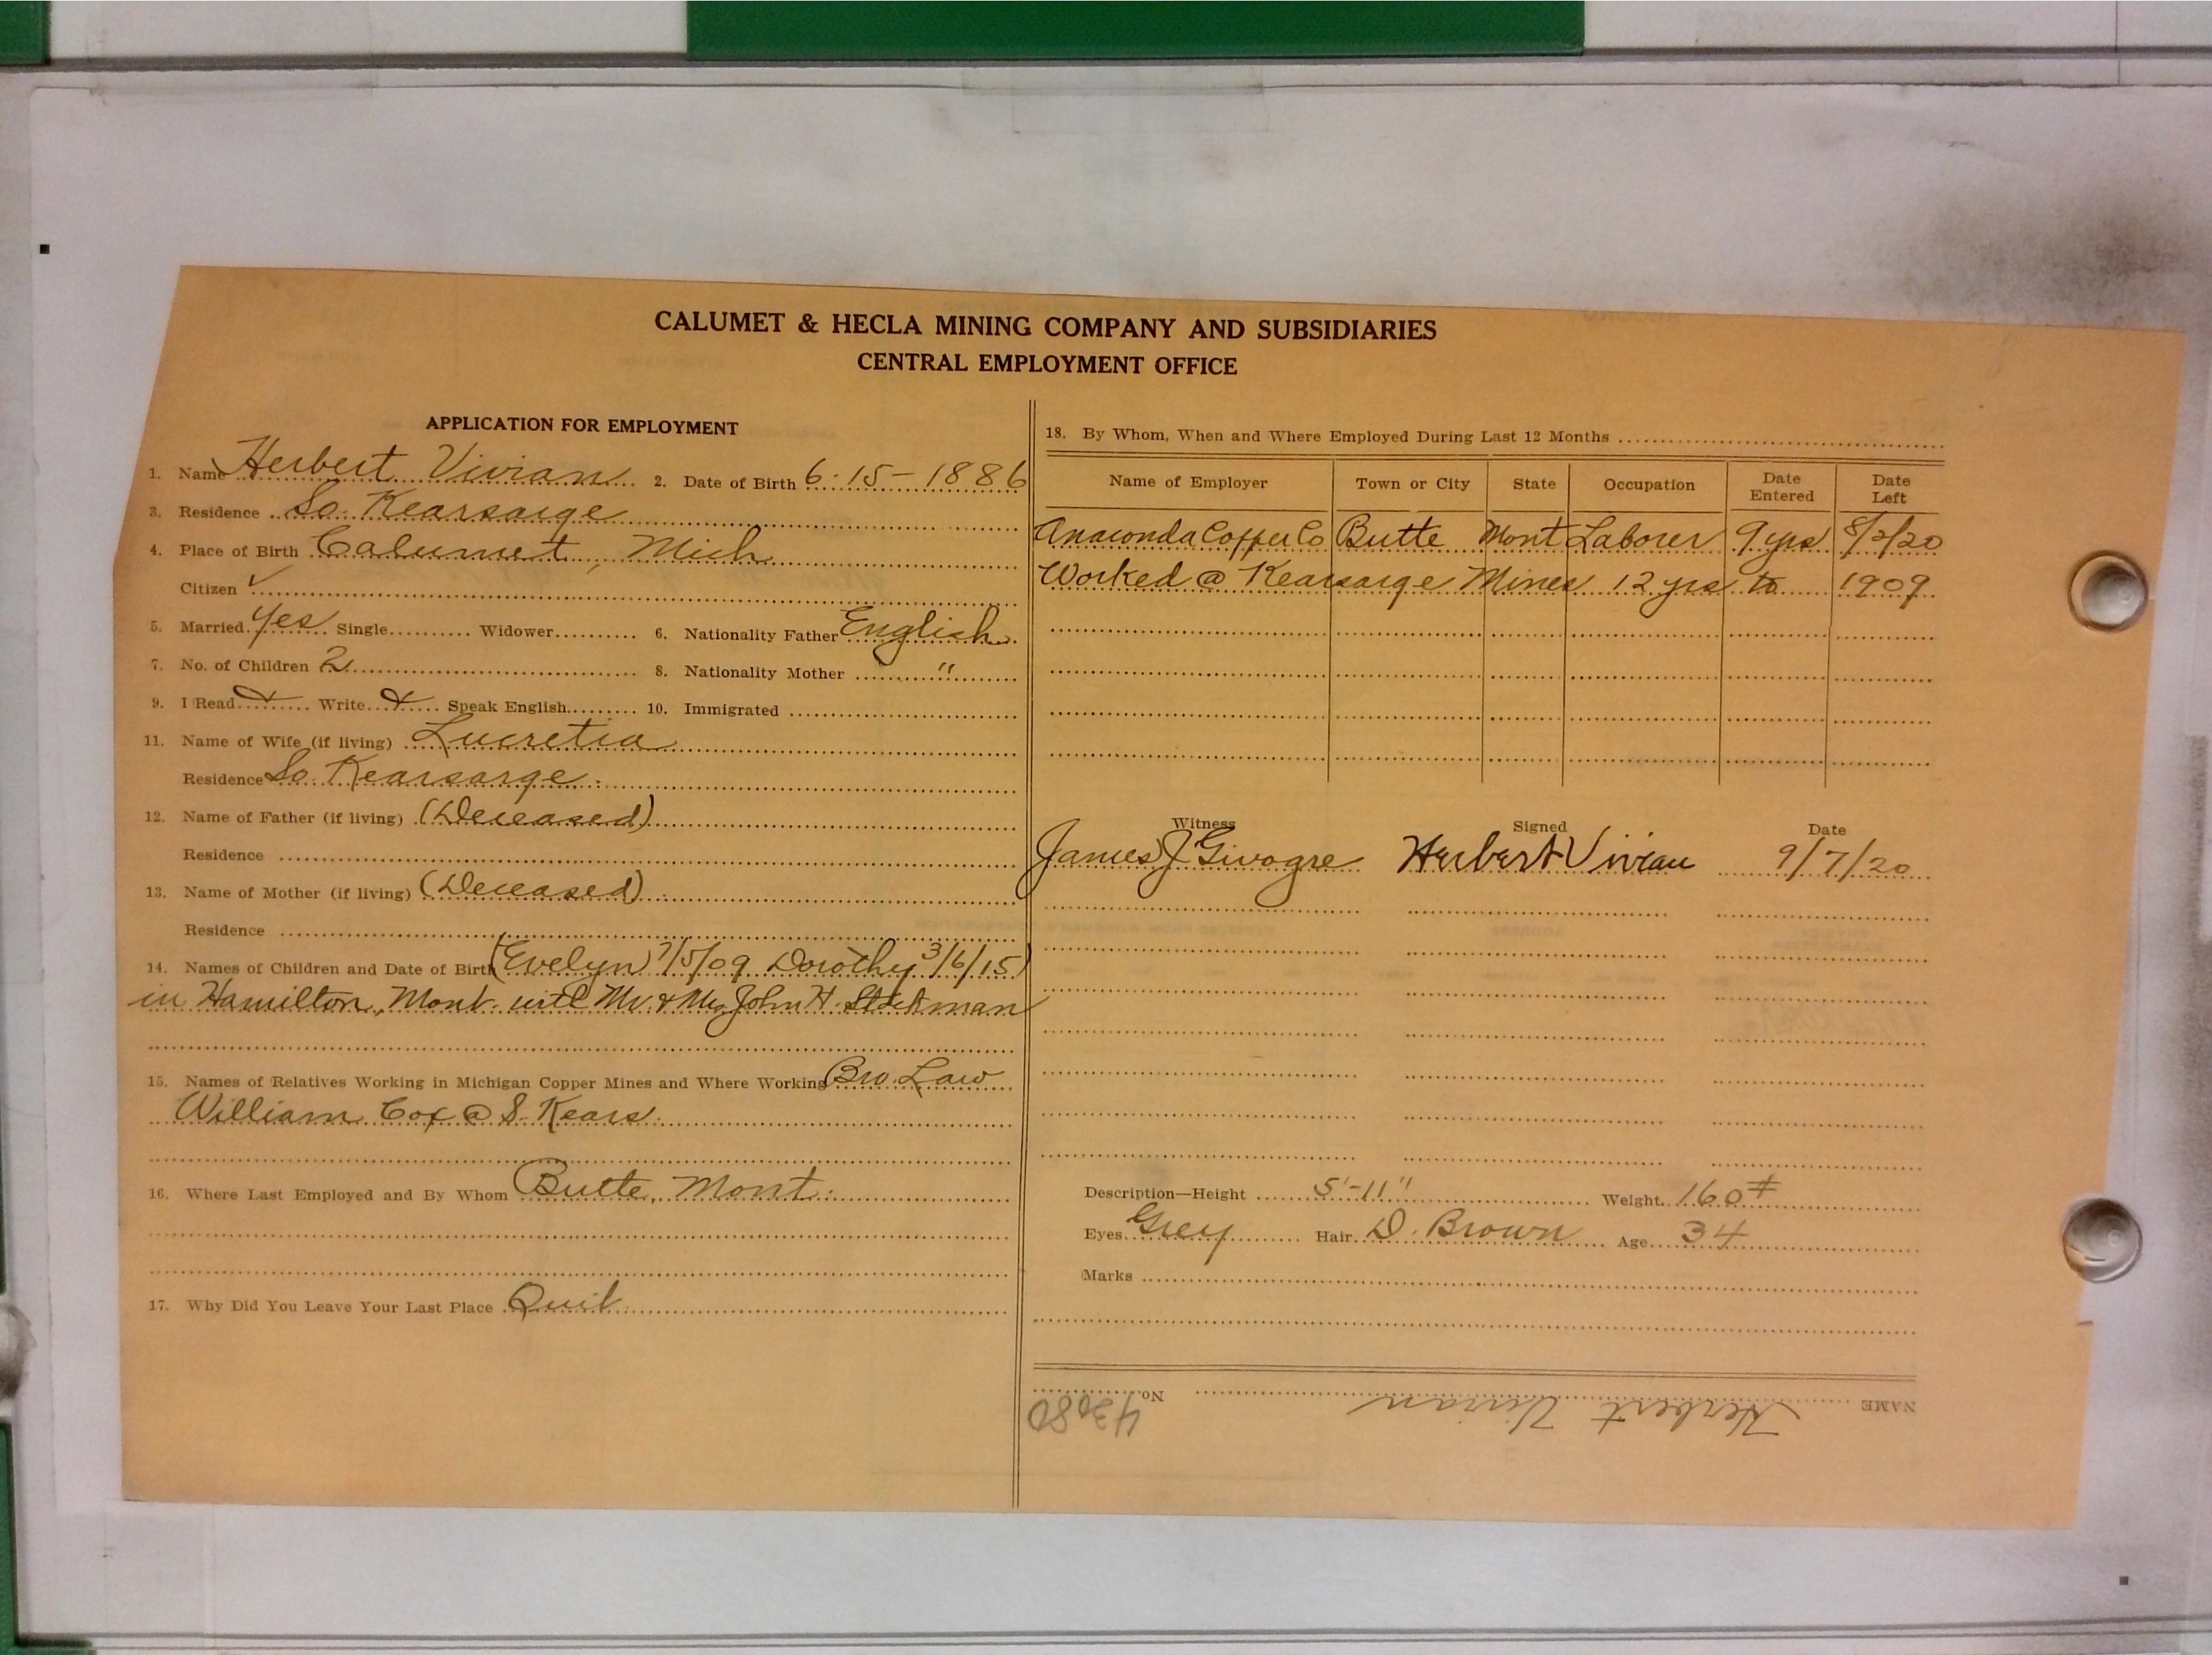 CALUMET & HECLA MINING COMPANY AND SUBSIDIARIES
CENTRAL EMPLOYMENT OFFICE
APPLICATION FOR EMPLOYMENT
1. Name Herbert Vivian 2. Date of Birth 6-15-1886
3. Residence So. Kearsarge
4. Place of Birth Calumet, Mich
Citizen ✓
5. Married yes Single Widower 6. Nationality Father English
7. No. of Children 2 8. Nationality Mother "
9. I Read Write Speak English 10. Immigrated
11. Name of Wife (if living) Lucretia
Residence So. Kearsarge
12. Name of Father (if living) (Deceased)
Residence
13. Name of Mother (if living) (Deceased)
Residence
14. Names of Children and Date of Birth (Evelyn 7/5/09 Dorothy 3/6/15)
in Hamilton, Mont. with Mr. & Mrs John H.
15. Names of Relatives Working in Michigan Copper Mines and Where Working Bro. Law
William Cox @ S. Kears.
16. Where Last Employed and By Whom Butte, Mont.
17. Why Did You Leave Your Last Place Quit
18. By Whom, When and Where Employed During Last 12 Months
Name of Employer Town or City State Occupation Date Entered Date Left
Anaconda Copper Co Butte Mont Laborer 9 yrs 8/2/20
Worked @ Kearsarge Mines 12 yrs to 1909
Witness Signed Date
James J. Herbert Vivian 9/7/20
Description—Height 5'-11" Weight 160#
Eyes Grey Hair D. Brown Age 34
Marks
NAME Herbert Vivian No. 43080